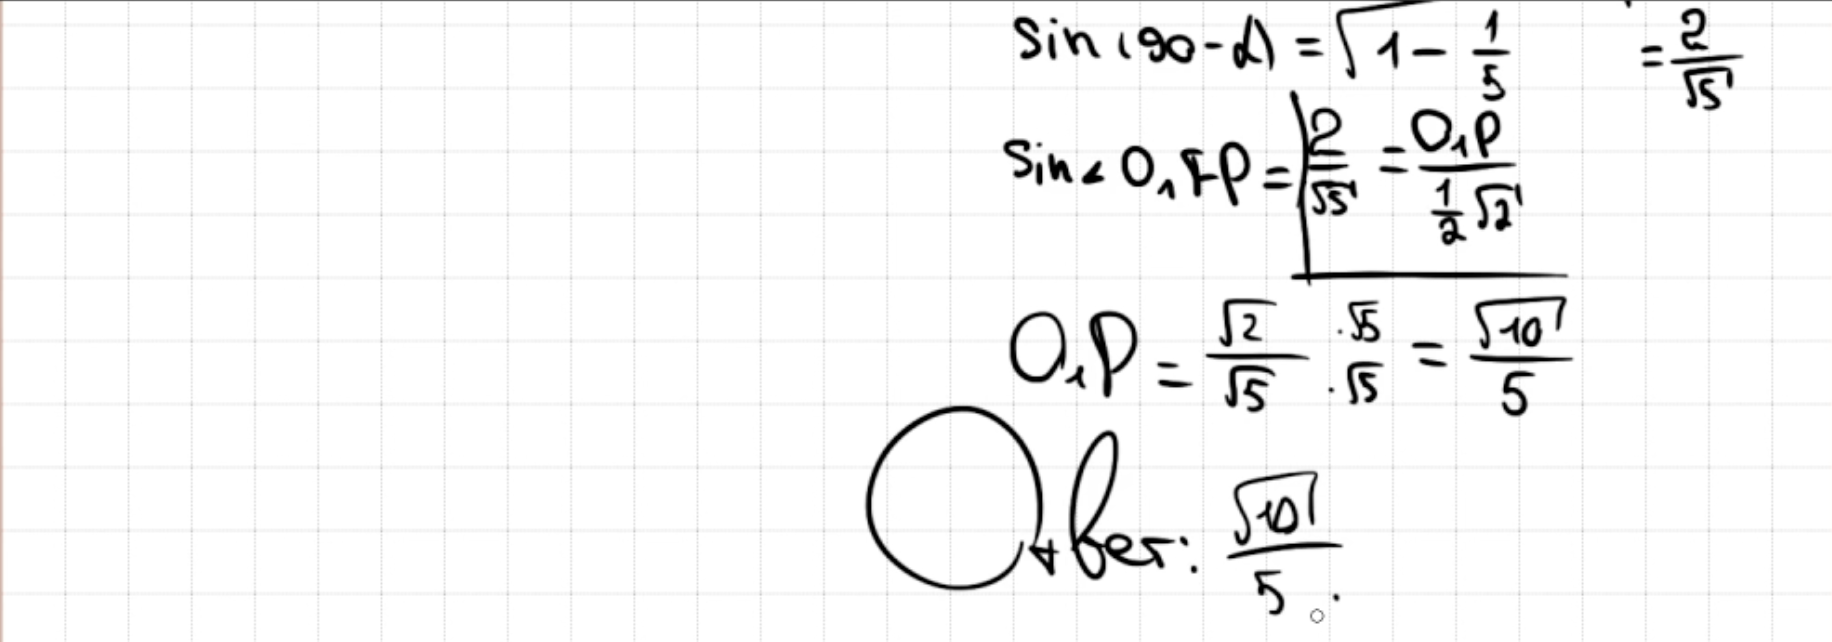 sin(90-α) = √1 - 1/5 = 2/√5
sin∠O₁FP = 2/√5 = O₁P/(1/2 √2)
O₁P = √2/√5 ·√5/·√5 = √10/5
Ответ: √10/5.